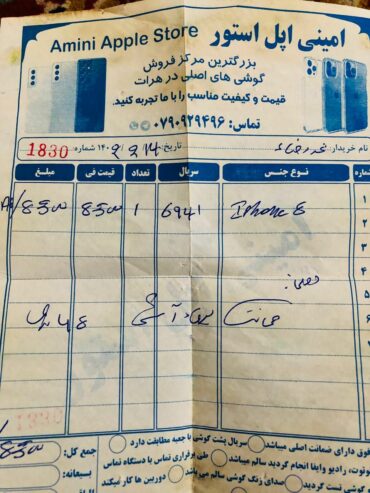 امینی اپل استور Amini Apple Store
بزرگترین مرکز فروش
گوشی های اصلی در هرات
قیمت و کیفیت مناسب را با ما تجربه کنید.
تماس: ۰۷۹۰۹۲۹۴۹۶
نام خریدار: تاریخ: 14/2/140۲ شماره: 1830
شماره نوع جنس سریال تعداد قیمت فی مبلغ
1 Iphone 8 6941 1 8500 8500
2
3
4
5
6
ضمانت 48
1830
فوق دارای ضمانت اصلی میباشد سریال پشت گوشی با جعبه مطابقت دارد
جمع کل: 8500
بلوتوث، رادیو وایفا انجام گردید سالم میباشد طی برقراری تماس با دستگاه تماس
بیعانه:
گوشی تست گردید صدای زنگ گوشی سالم می باشد دوربین ها کار میکند